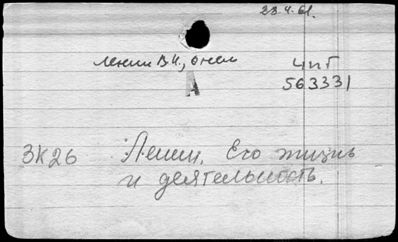 23.4.61.
Ленин В.И., о нем
ЧПГ
563331
А
ЗК26 Ленин. Его жизнь
и деятельность.